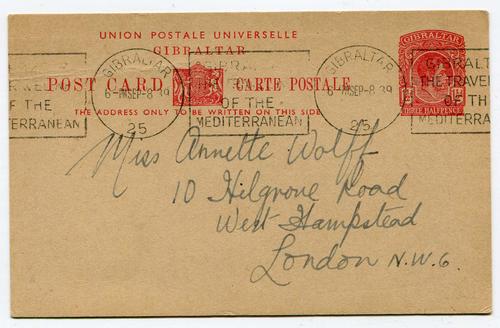 UNION POSTALE UNIVERSELLE
GIBRALTAR
POST CARD CARTE POSTALE
THE ADDRESS ONLY TO BE WRITTEN ON THIS SIDE
GIBRALTAR
THREE HALFPENCE
GIBRALTAR
6-PM SEP-8 39
25
OF THE
MEDITERRANEAN
GIBRALTAR
6-PM SEP-8 39
25
GIBRALT
THE TRAVEL
OF TH
MEDITERRA
OF THE
TERRANEAN
Miss Annette Wolff
10 Hilgrove Road
West Hampstead
London N.W.6.